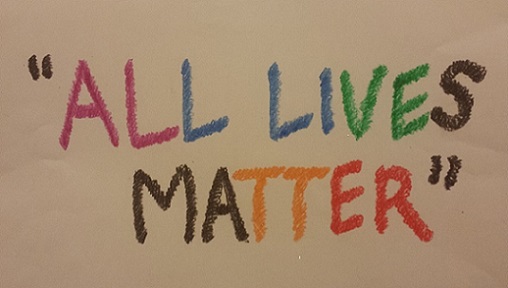 "ALL LIVES
MATTER"